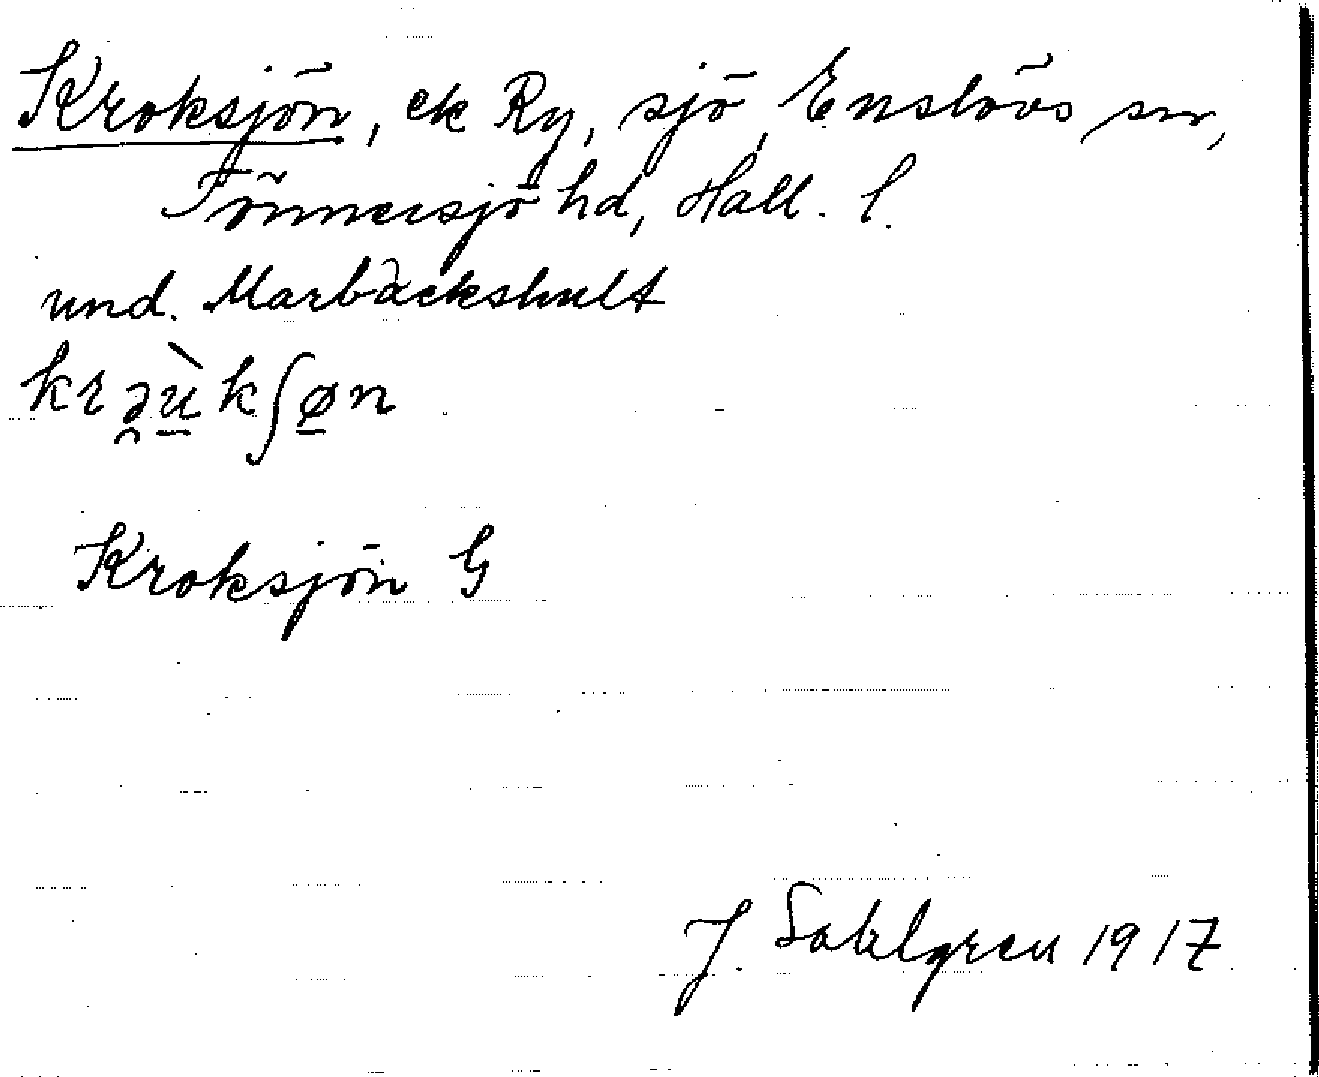 Kroksjön, ek Ry, sjö, Enslövs sn,
Tönnersjö hd, Hall. l.
und. Marbäckshult
krə̯ù̠kʃø̠n
Kroksjön G
J. Sahlgren 1917.